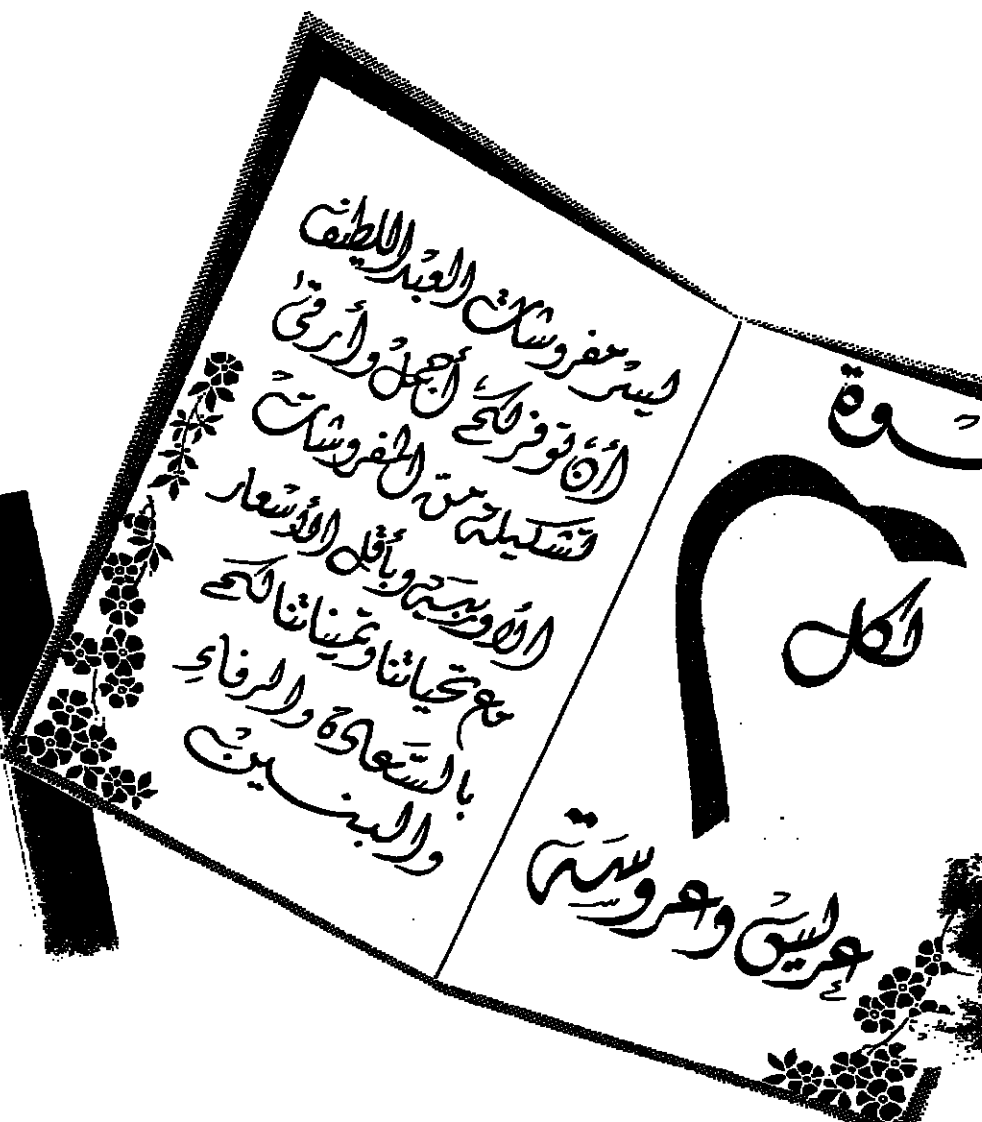 ـوة
لكل
عريس وعروسة
ليسر مفروشات العبداللطيف
أن توفر لكم أجمل وأرقى
تشكيلة من المفروشات
الأوربية وبأقل الأسعار
مع تحياتنا وتمنياتنا لكم
بالسعادة والرفاء
والبنين